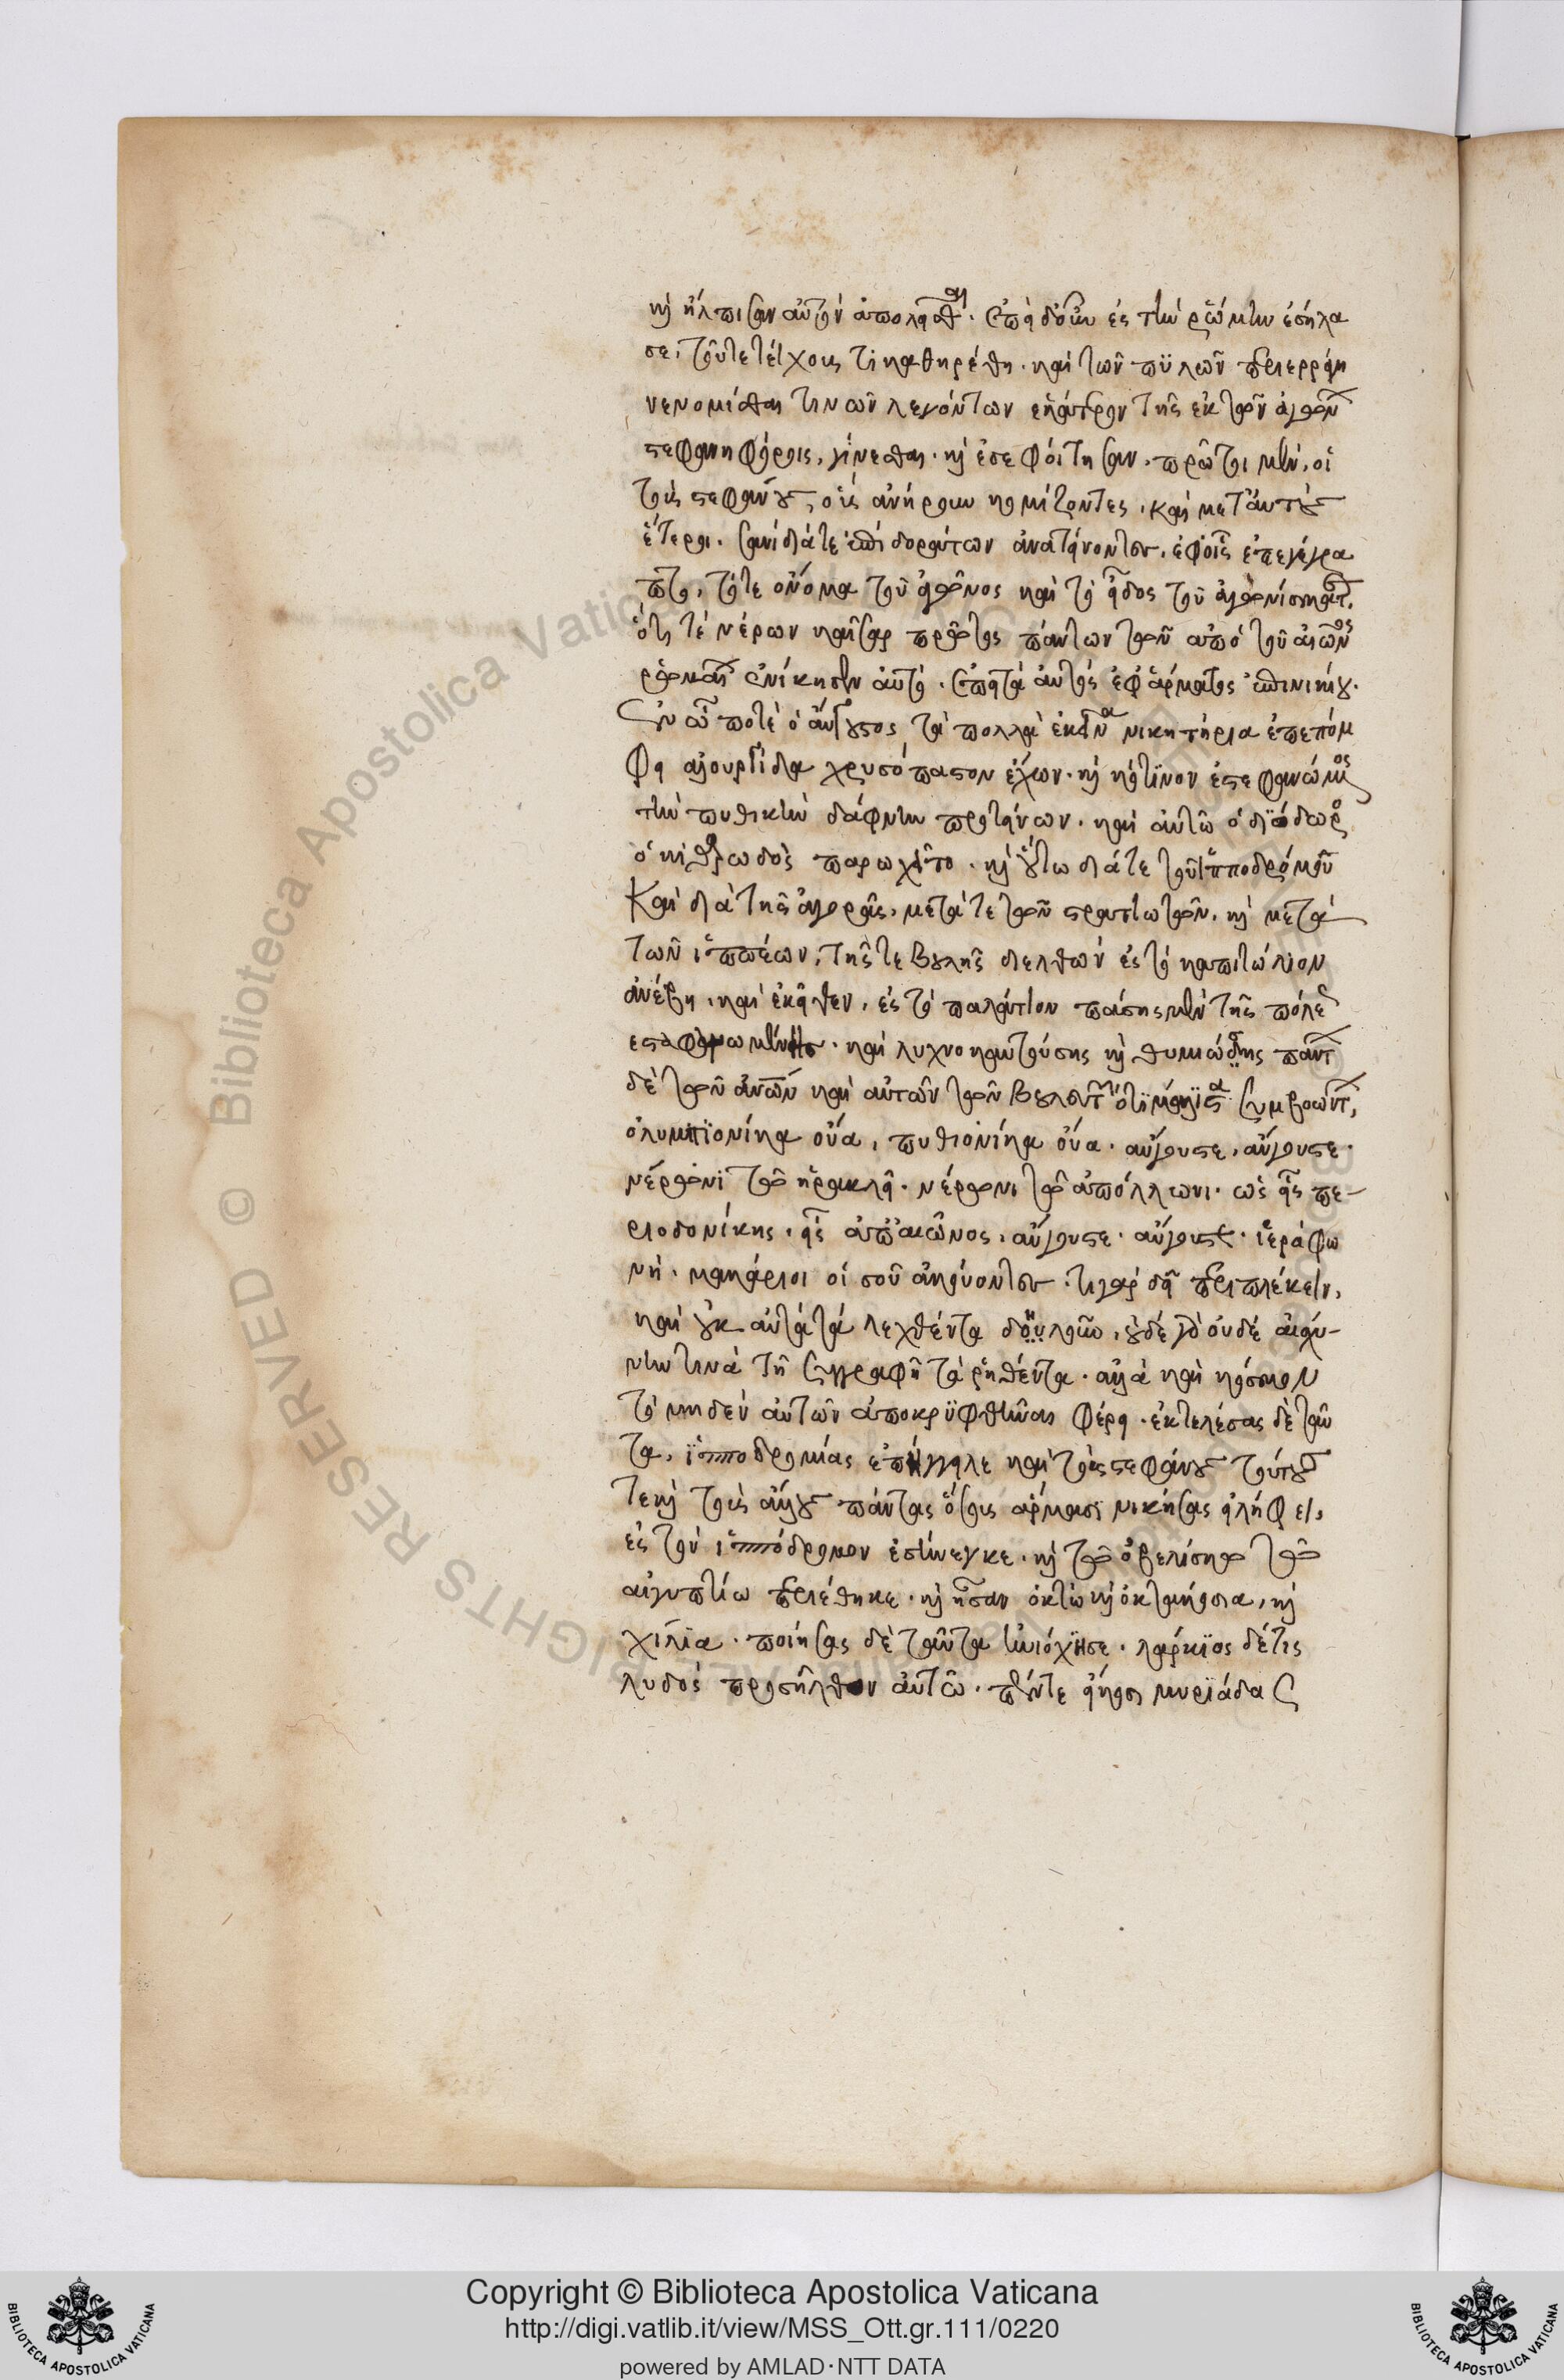 καὶ ἤλπισαν αὐτὸν ἀπολεῖσθαι. ἐπεὶ δ' οὖν ἐς τὴν ῥώμην ἐσήλα
σε, τοῦ τε τείχους τὶ καθηρέθη. καὶ τῶν πϋλῶν περιερράγη
νενομίσθαι τινῶν λεγόντων ἑκάτερον τοῖς ἐκ τῶν ἀγώνων
στεφανηφόροις, γίνεσθαι. καὶ ἐσεφοίτησαν, πρῶτοι μὲν, οἱ
τοὺς στεφάνους, οὓς ἀνήρητο κομίζοντες. καὶ μετ' αὐτοὺς
ἕτεροι. σανίδιά τε ἐπὶ δοράτων ἀνατείνοντες. ἐφ' οἷς ἐπεγέγρα
πτο, τό τε ὄνομα τοῦ ἀγῶνος καὶ τὸ εἶδος τοῦ ἀγωνίσματος,
ὅτι τὲ νέρων καῖσαρ πρῶτος πάντων τῶν ἀπὸ τοῦ αἰῶνος
ῥωμαίων ἐνίκησεν αὐτό. ἔπειτα αὐτὸς ἐφ' ἅρματος ἐπινικίου.
ἐν ᾧ ποτὲ ὁ αὔγουστος τὰ πολλὰ ἐκεῖνα νικητήρια ἐπεπόμ
φει ἁλουργίδα χρυσόπαστον ἔχων. καὶ κότϊνον ἐστεφανωμένος
τὴν πυθικὴν δάφνην προτείνων. καὶ αὐτῷ ὁ διόδωρος
ὁ κιθαρῳδὸς παρωχεῖτο. καὶ οὕτω διά τε τοῦ ἱπποδρόμου
καὶ διὰ τῆς ἀγορᾶς, μετά τε τῶν στρατιωτῶν, καὶ μετὰ
τῶν ἱππέων, τῆς τε βουλῆς διελθὼν ἐς τὸ καπιτώλιον
ἀνέβη. καὶ ἐκεῖθεν, ἐς τὸ παλάτιον πάσης μὲν τῆς πόλεως
ἐστεφανωμένης. καὶ λυχνοκαυτούσης καὶ θυμιώσης πάντων
δὲ τῶν ἀνθρώπων καὶ αὐτῶν τῶν βουλευτῶν ὅτι μάλιστα συμβοώντων,
ὀλυμπϊονίκα οὐᾶ, πυθιονίκα οὐᾶ. αὔγουστε, αὔγουστε.
νέρωνι τῷ ἡρακλεῖ. νέρωνι τῷ ἀπόλλωνι. ὡς εἷς πε-
ριοδονίκης. εἷς ἀπ' αἰῶνος. αὔγουστε. αὔγουστε. ἱερὰ φω
νή. μακάριοι οἵ σου ἀκούοντες. τί γὰρ δεῖ περιπλέκειν,
καὶ οὐκ αὐτὰ τὰ λεχθέντα δηλοῦν, οὐδὲ γὰρ οὐδὲ αἰσχύ-
νην τινὰ τῇ συγγραφῇ τὰ ῥηθέντα. ἀλλὰ καὶ κόσμον
τὸ μηδὲν αὐτῶν ἀποκρϋφθῆναι φέρει. ἐκτελέσας δὲ ταῦ
τα, ἱπποδρομίας ἐπήγγειλε καὶ τοὺς στεφάνους τούτους
τε καὶ τοὺς ἄλλους πάντας ὅσους ἅρμασι νικήσας εἰλήφει,
ἐς τὸν ἱππόδρομον ἐσήνεγκε. καὶ τῷ ὀβελίσκῳ τῷ
αἰγυπτίῳ περιέθηκε. καὶ ἦσαν ὀκτὼ καὶ ὀκτακόσια, καὶ
χίλϊα. ποιήσας δὲ ταῦτα ἡνιόχησε. λάρκϊος δέ τις
λυδὸς προσῆλθεν αὐτῷ. πέντε εἴκοσι μυρϊάδας
Copyright © Biblioteca Apostolica Vaticana
http://digi.vatlib.it/view/MSS_Ott.gr.111/0220
powered by AMLAD·NTT DATA